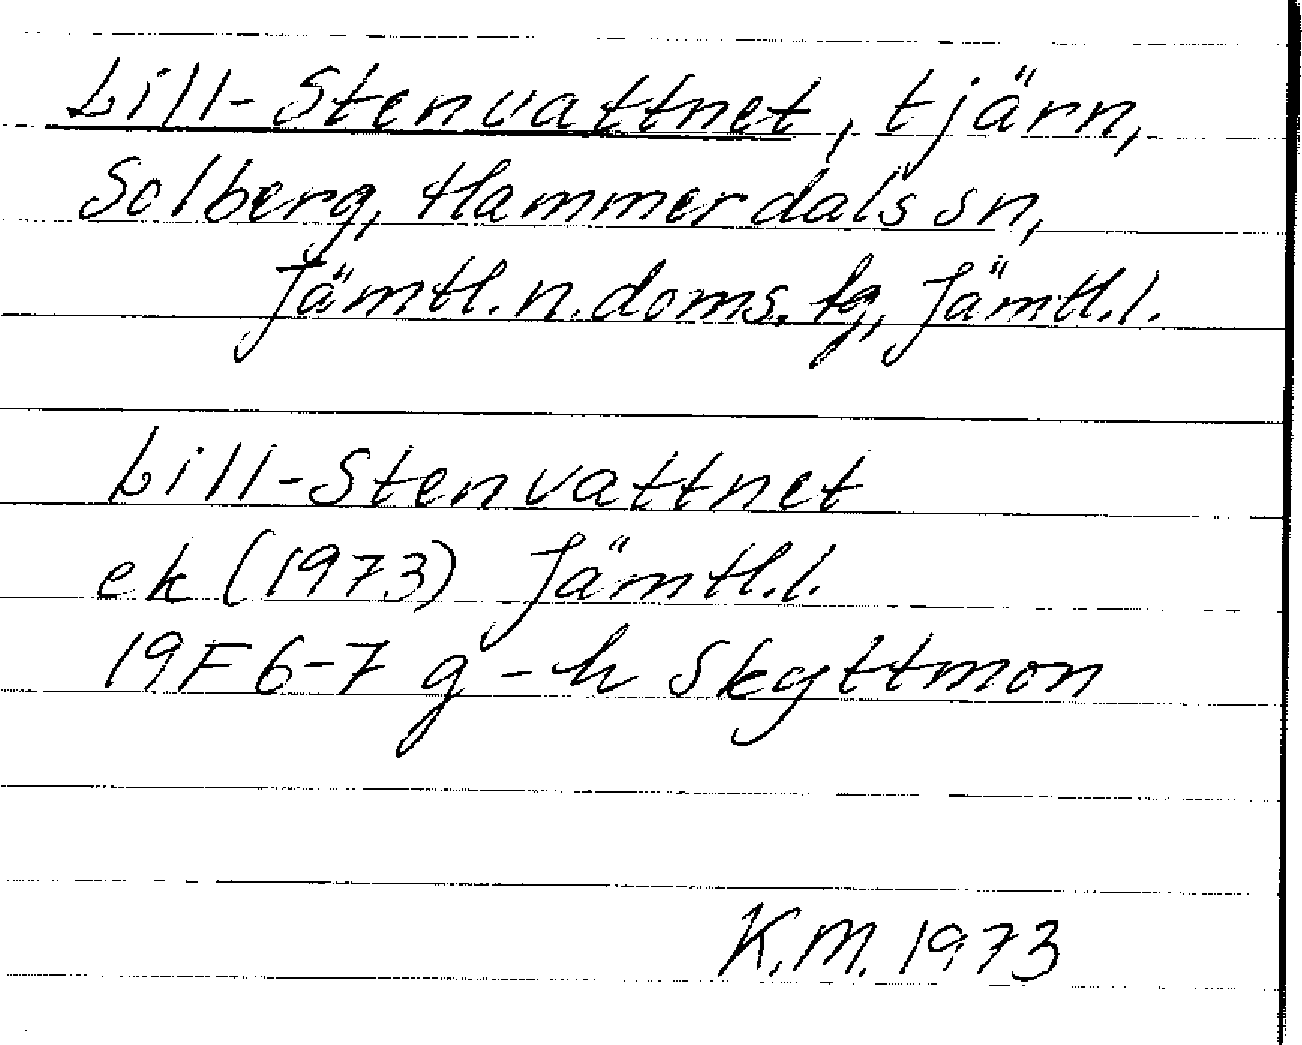 Lill-Stenvattnet, tjärn,
Solberg, Hammerdals sn,
Jämtl.n.doms.tg, Jämtl.l.
Lill-Stenvattnet
ek (1973) Jämtl.l.
19F 6-7 g-h Skyttmon
K.M. 1973